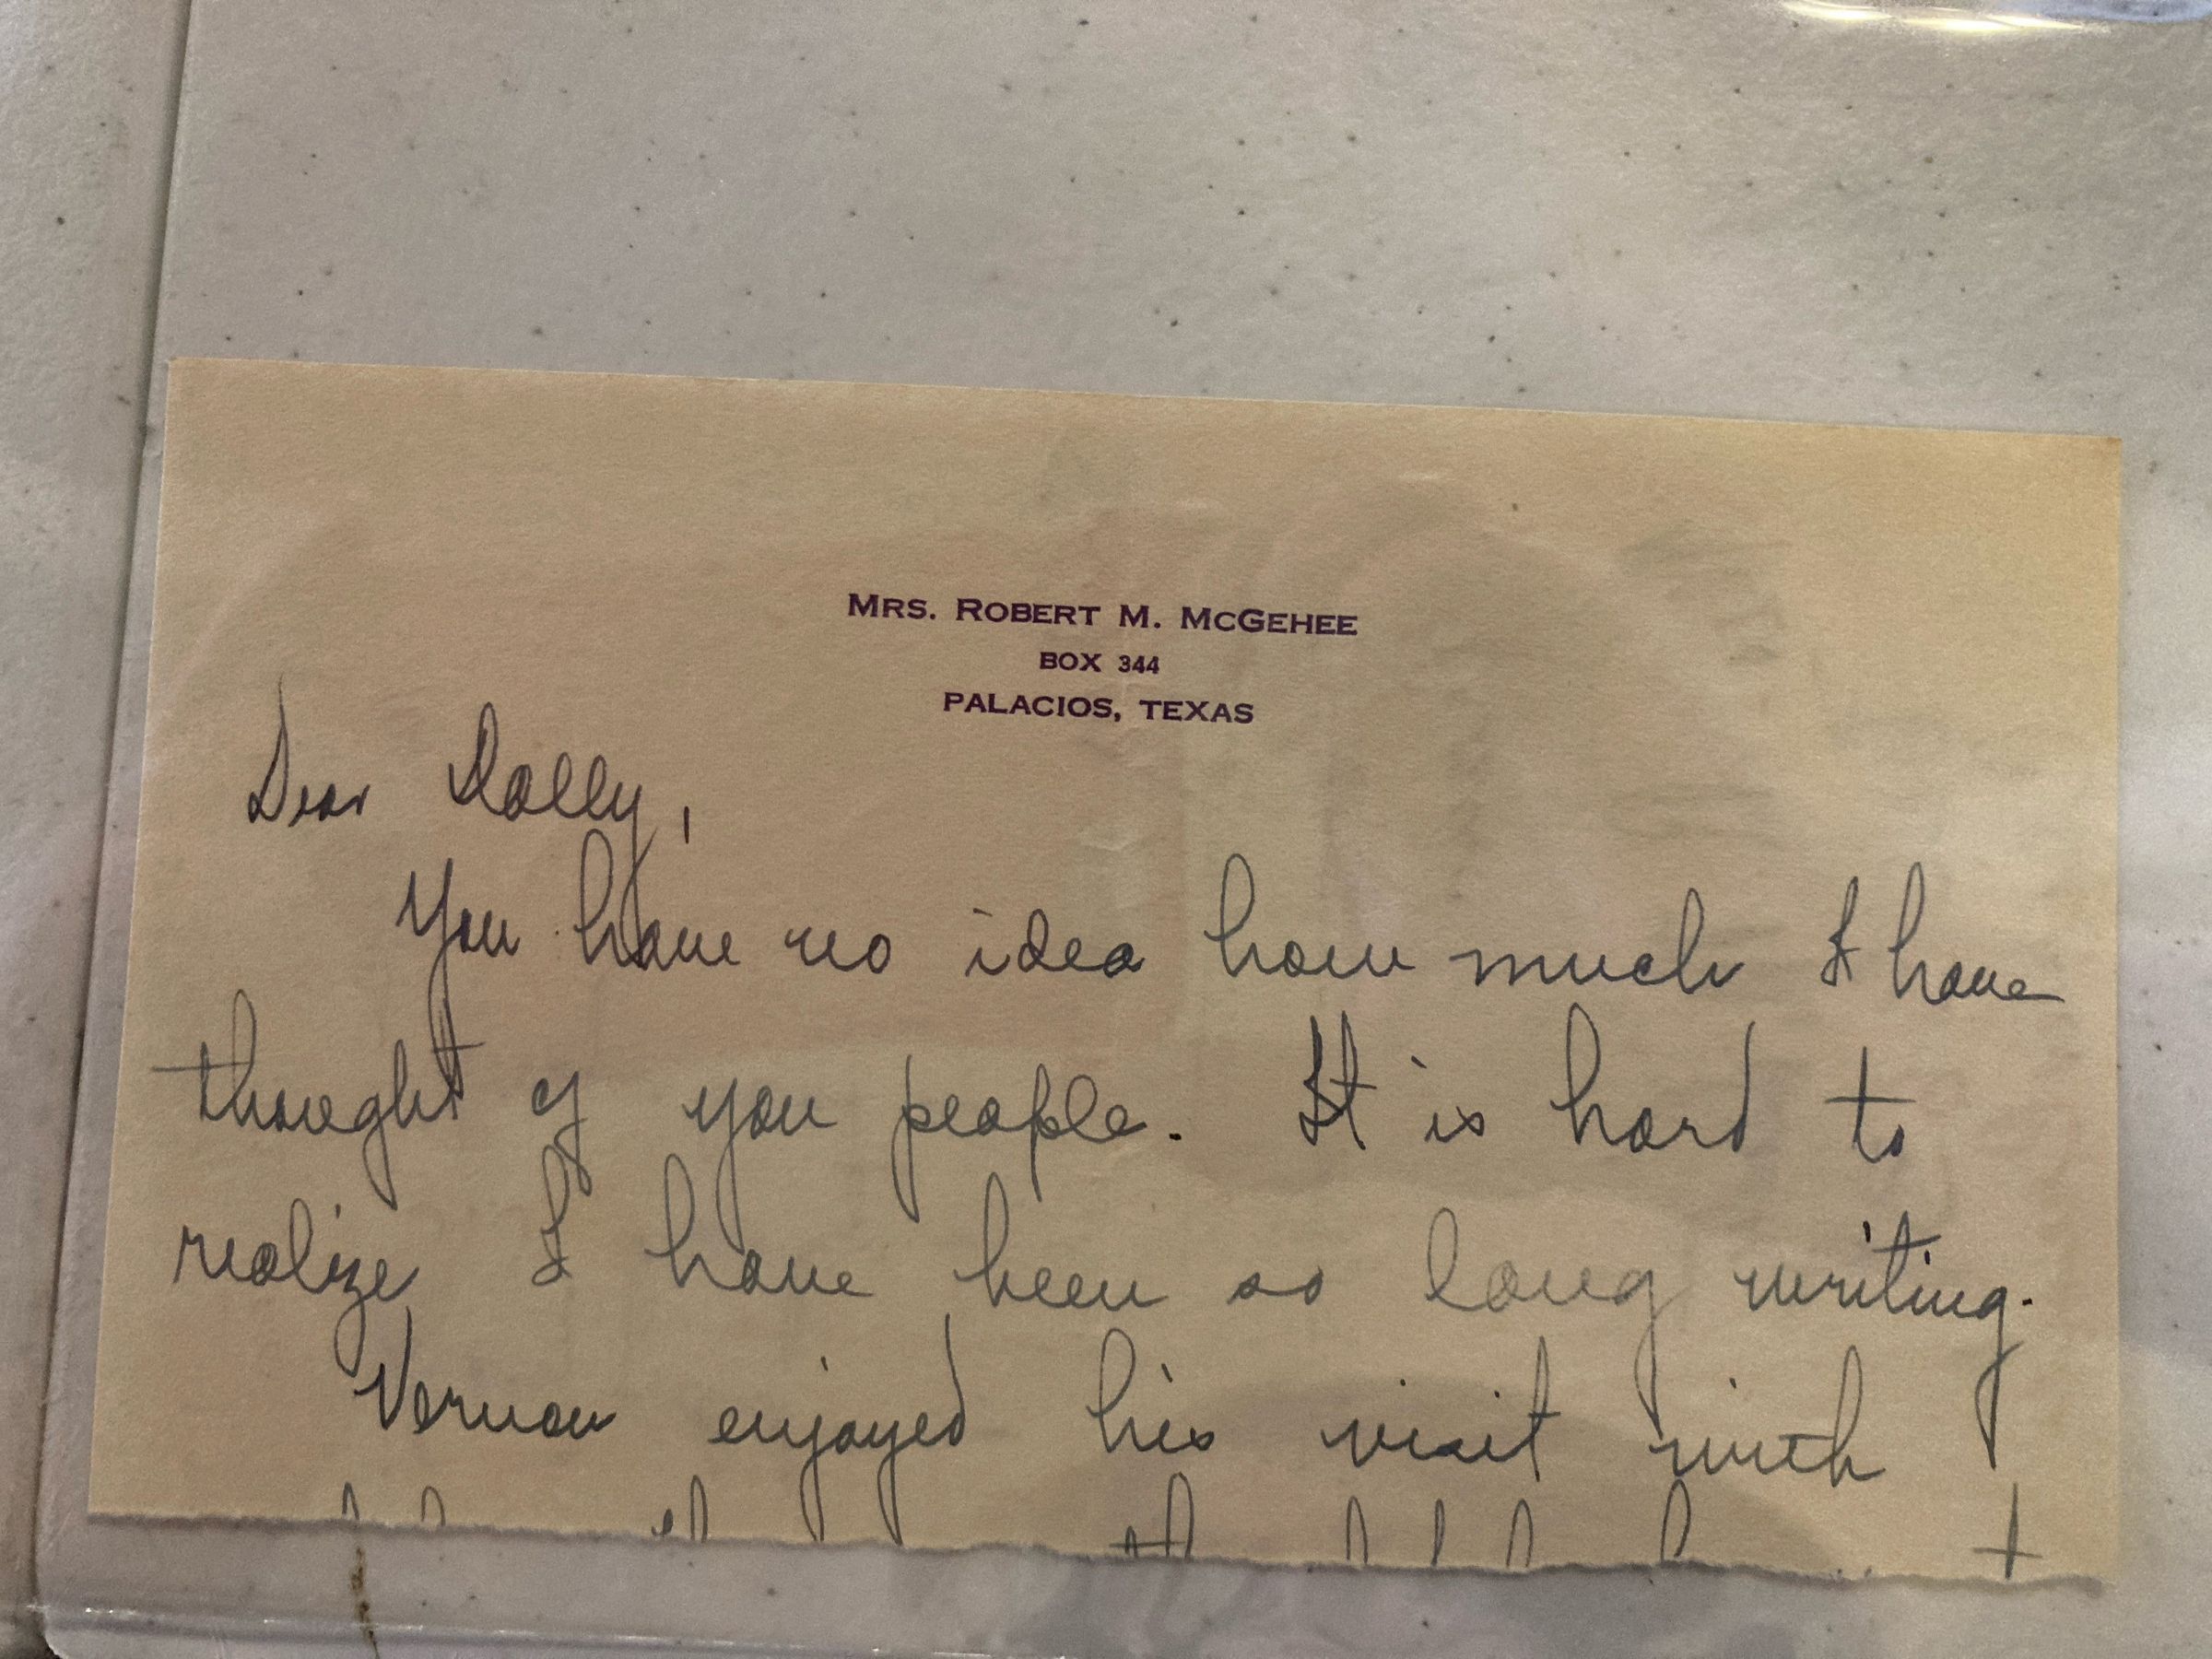 MRS. ROBERT M. MCGEHEE
BOX 344
PALACIOS, TEXAS
Dear Dolly,
You have no idea how much I have
thought of you people. It is hard to
realize I have been so long writing.
Vernon enjoyed his visit with